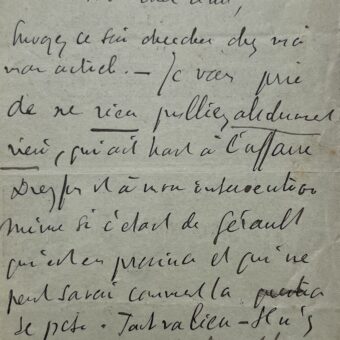 mon cher ami,
Envoyez ce soir chercher chez moi
mon article. — Je vous prie
de ne rien publier, absolument
rien, qui ait trait à l'affaire
Dreyfus et à mon intervention
même si c'était de Gérault
qui est en province et qui ne
peut savoir comment la question
se pose. Tout va bien —